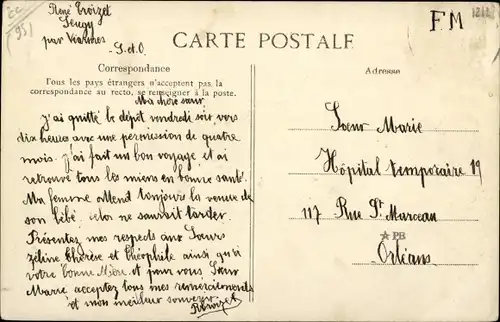 René Croizet
Seugy
par Viarmes
S.-et-O.
FM
CARTE POSTALE
Correspondance
Tous les pays étrangers n'acceptent pas la
correspondance au recto, se renseigner à la poste.
Adresse
Ma chère sœur
J'ai quitté le dépôt vendredi soir vers
dix heures avec une permission de quatre
mois. j'ai fait un bon voyage et ai
retrouvé tous les miens en bonne santé.
Ma femme attend toujours la venue de
son bébé, celor ne saurait tarder.
Présentez mes respects aux Sœurs
Zéline Thérèse et Théophile ainsi qu'à
votre bonne Mère et pour vous, Sœur
Marie acceptez tous mes remerciements
et mon meilleur souvenir.
RCroizet
Soeur Marie
Hôpital temporaire 19
117 Rue St Marceau
PB
Orléans